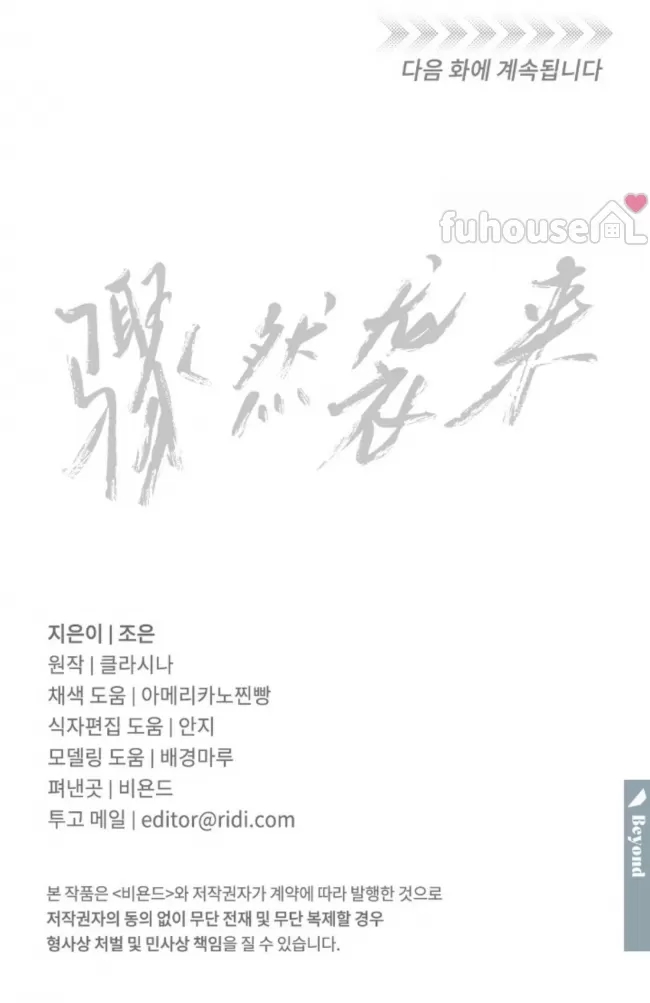 다음 화에 계속됩니다
fuhouse
骤然袭来
지은이 | 조은
원작 | 클라시나
채색 도움 | 아메리카노찐빵
식자편집 도움 | 안지
모델링 도움 | 배경마루
펴낸곳 | 비욘드
투고 메일 | editor@ridi.com
Beyond
본 작품은 <비욘드>와 저작권자가 계약에 따라 발행한 것으로
저작권자의 동의 없이 무단 전재 및 무단 복제할 경우
형사상 처벌 및 민사상 책임을 질 수 있습니다.